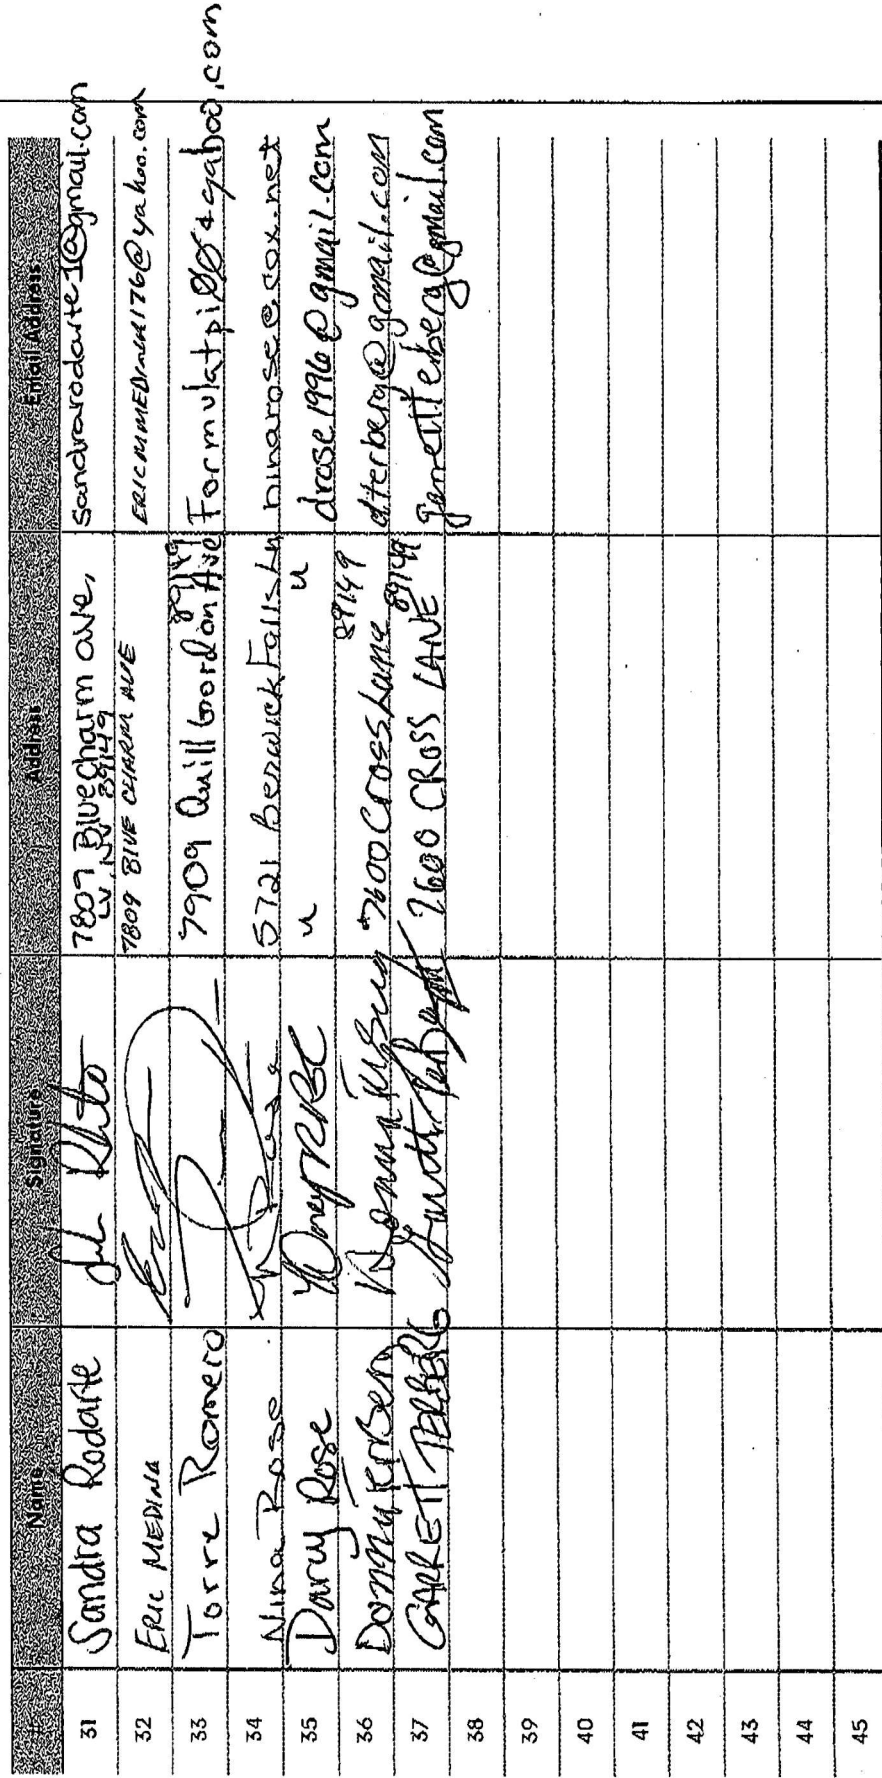 # Name Signature Address Email Address
31 Sandra Rodarte 7809 Bluecharm ave, sandrarodarte1@gmail.com
LV, NV 89149
32 ERIC MEDINA 7809 BLUE CHARM AVE ERICMMEDINA176@yahoo.com
33 Torre Romero 7909 Quill Gordon Ave 89149
34 Nina Rose 5721 Berwick Falls Ln ninarose@cox.net
35 Darcy Rose " " drose1996@gmail.com
36 7600 Cross Lane 89149 dterberg@gmail.com
37 GARRETT TERBERG 7600 CROSS LANE 89149 garrettterberg@gmail.com
38
39
40
41
42
43
44
45